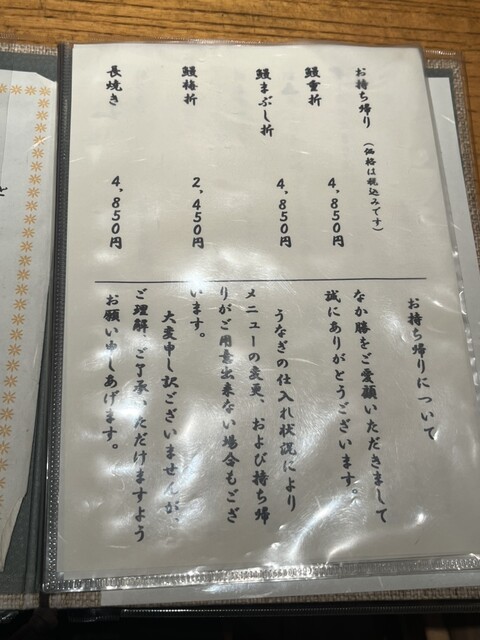 お持ち帰り(価格は税込みです)
鰻重折 4,850円
鰻まぶし折 4,850円
鰻椿折 2,450円
長焼き 4,850円
お持ち帰りについて
なか勝をご愛顧いただきまして
誠にありがとうございます。
うなぎの仕入れ状況により
メニューの変更、および持ち帰
りがご用意出来ない場合もござ
います。
大変申し訳ございませんが、
ご理解、ご了承いただけますよう
お願い申しあげます。